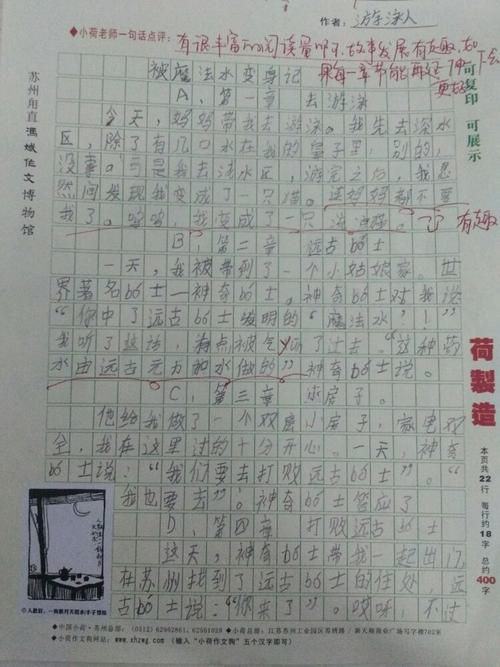 作者：游泳人
◆小荷老师一句话点评：有很丰富的阅读量
故事发展有趣，如
果每一章节能再延
更好
可复印 可展示
苏州甪直馮斌作文博物馆
被魔法水变身记
A，第一章 去游泳
今天，妈妈带我去游泳。我先去深水
区，除了有几口水在我的鼻子里，别的，
没事。可是我去浅水区，游完之后，我忽
然间发现我变成了一只猫。连妈妈都不要
我了。呜呜，我变成了一只流浪猫。
有趣
B，第二章 远古bó士
一天，我被带到了一个小姑娘家。世
界著名bó士—神奇bó士。神奇bó士对我说
“你中了远古bó士发明的“魔法水”！”
我听了这话，差点被气yūn了过去。“这种药
水由远古元力和水做的”神奇bó士说。
C，第三章 求房子
他给我做了一个双层小房子，家电双
全，我在这里过的十分开心。一天，神奇
bó士说：“我们要去打败远古bó士”。“
我也要去”。神奇bó士答应了
D，第四章 打败远古bó士
这天，神奇bó士带我一起出门，
在苏州找到了远古bó士的住处，远
古bó士说：“你来了”。哎呀，不过
荷製造
本页共22行 每行约18字 总约400字
◆中国小荷·苏州总部：(0512) 62962861，62561029 ◆小荷总部：江苏苏州工业园区苏绣路／新天翔商业广场写字楼702室
◆小荷作文网网站：www.xhzwg.com（输入“小荷作文网”五个汉字即可）